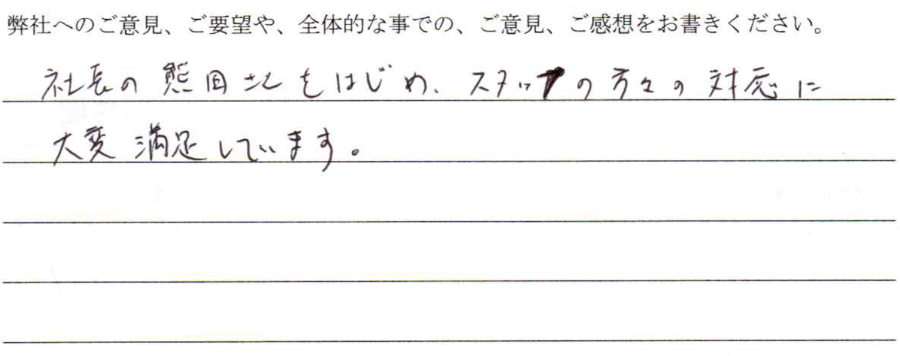 弊社へのご意見、ご要望や、全体的な事での、ご意見、ご感想をお書きください。
社長の をはじめ、スタッフの方々の対応に
大変満足しています。